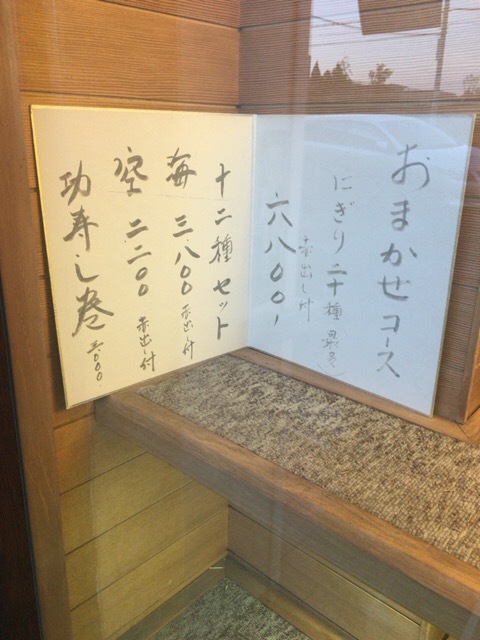 おまかせコース
にぎり二十種
赤出し付
六八〇〇
十二種セット
海 三.八〇〇 赤出し付
空 二二〇〇 赤出し付
功寿し巻